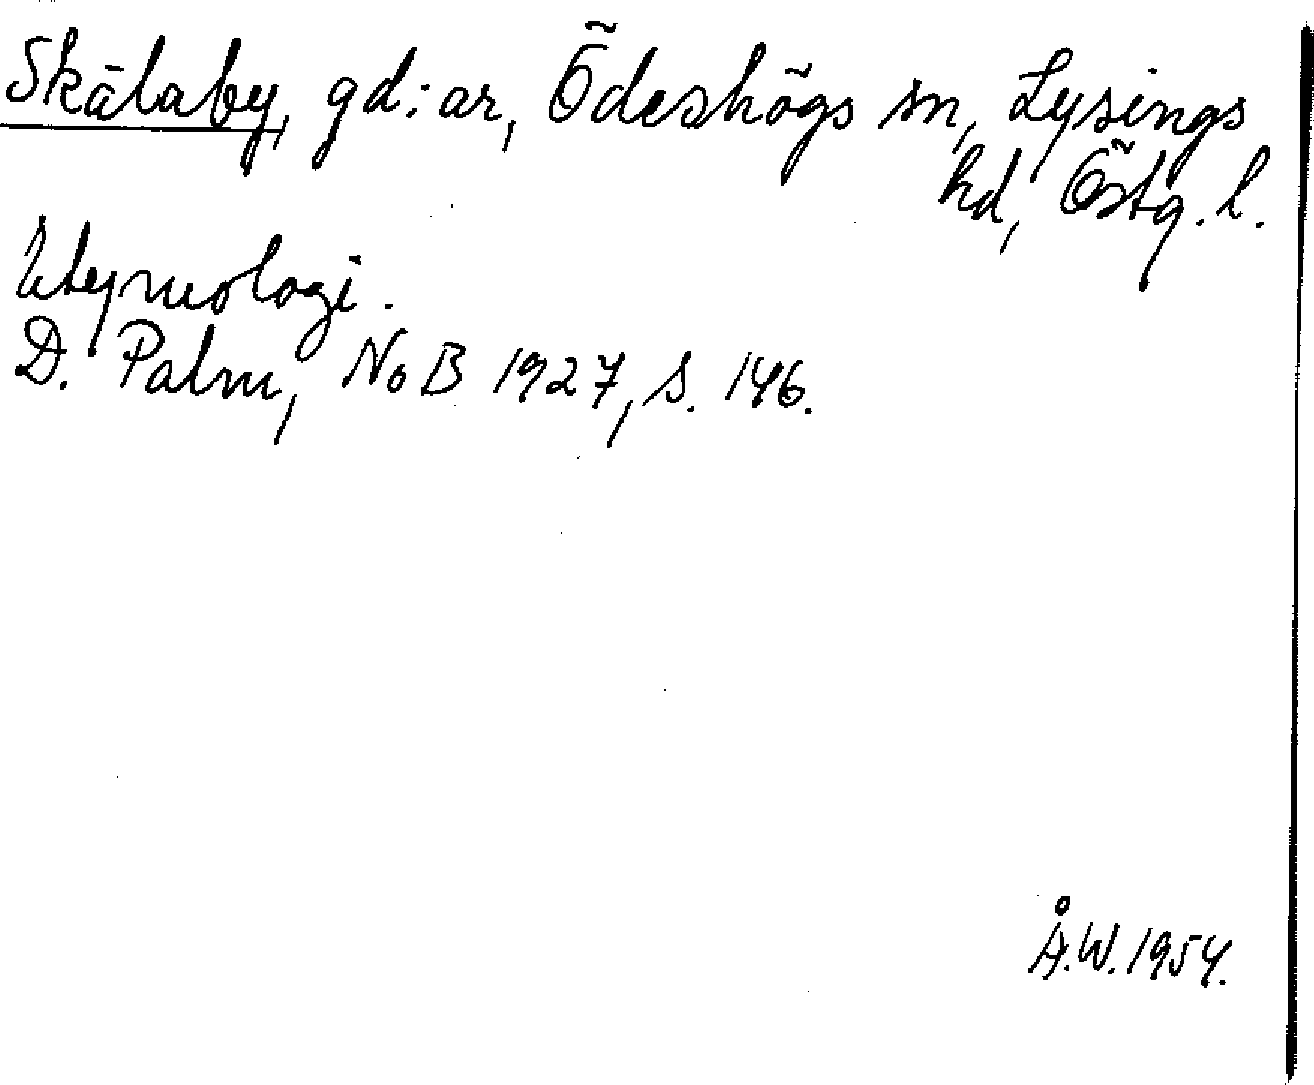 Skålaby, gd:ar, Ödeshögs sn, Lysings
hd, Östg. l.
Etymologi.
D. Palm, NoB 1927, s. 146.
Å.W. 1954.